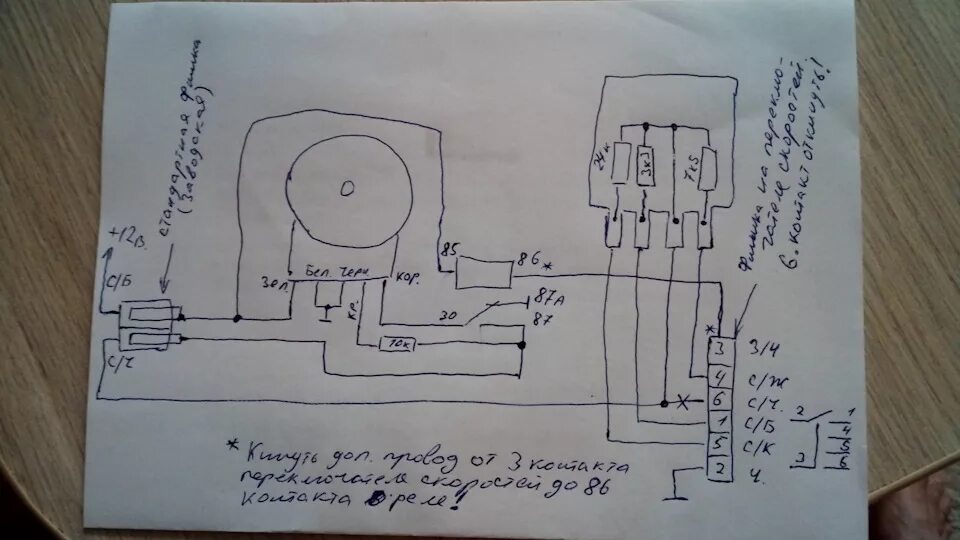 стандартная фишка
(Заводская)
+12в.
С/Б
С/Ч
Зел.
Бел.
Черн
кор.
кр.
10к
85
86 *
87А
30
87
24к
3к3
7к5
Фишка на переклю-
чателе скоростей
6. контакт откинуть!
*
3 З/Ч
4 С/Ж
6 С/Ч.
1 С/Б
5 С/К
2 Ч.
X
2
1
4
5
6
3
* Кинуть доп. провод от 3 контакта
переключателя скоростей до 86
контакта реле!